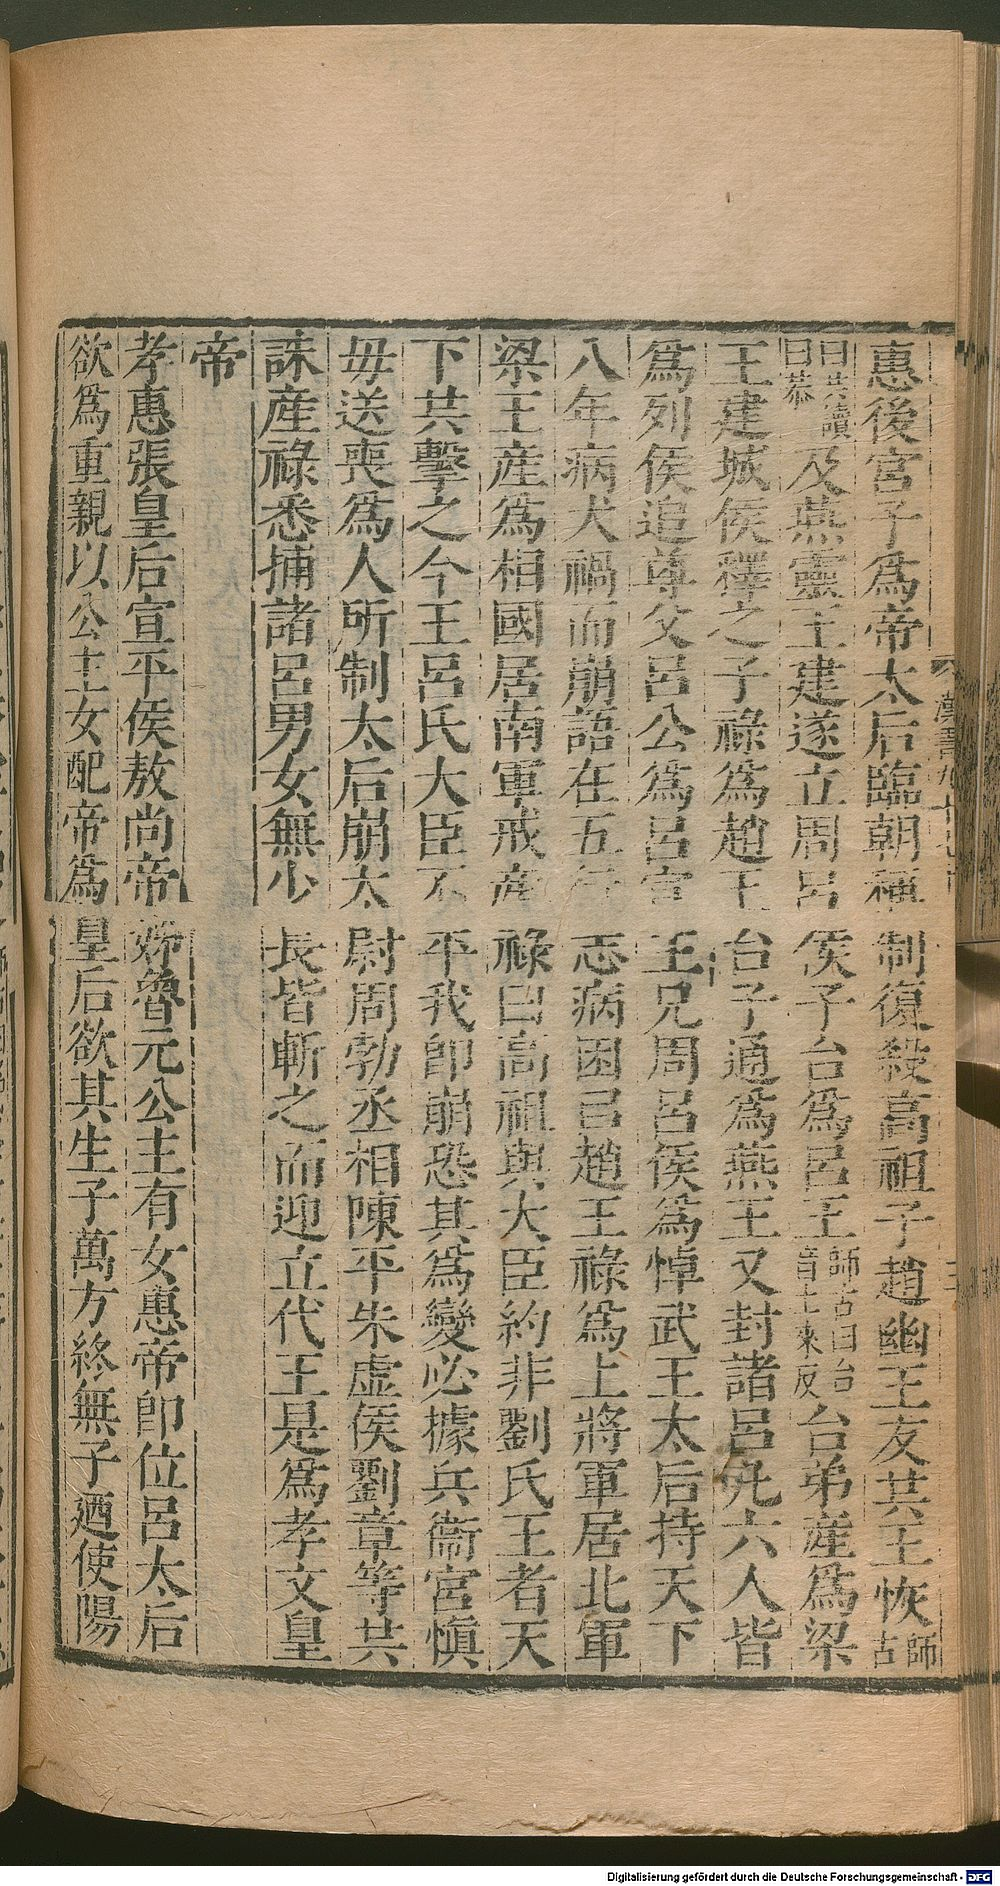 惠後宮子爲帝太后臨朝稱制復殺高祖子趙幽王友共王恢師古
曰共讀曰恭及燕靈王建遂立周呂侯子台爲呂王師古曰台音土來反台弟産爲梁
王建城侯釋之子祿爲趙王台子通爲燕王又封諸呂凡六人皆
爲列侯追尊父呂公爲呂宣王兄周呂侯爲悼武王太后持天下
八年病犬禍而崩語在五行志病困㠯趙王祿爲上將軍居北軍
梁王産爲相國居南軍戒産祿曰高祖與大臣約非劉氏王者天
下共擊之今王呂氏大臣不平我卽崩恐其爲變必據兵衞宮愼
毋送喪爲人所制太后崩太尉周勃丞相陳平朱虛侯劉章等共
誅産祿悉捕諸呂男女無少長皆斬之而迎立代王是爲孝文皇
帝
孝惠張皇后宣平侯敖尚帝姊魯元公主有女惠帝卽位呂太后
欲爲重親以公主女配帝爲皇后欲其生子萬方終無子廼使陽
漢書九十七上
Digitalisierung gefördert durch die Deutsche Forschungsgemeinschaft - DFG